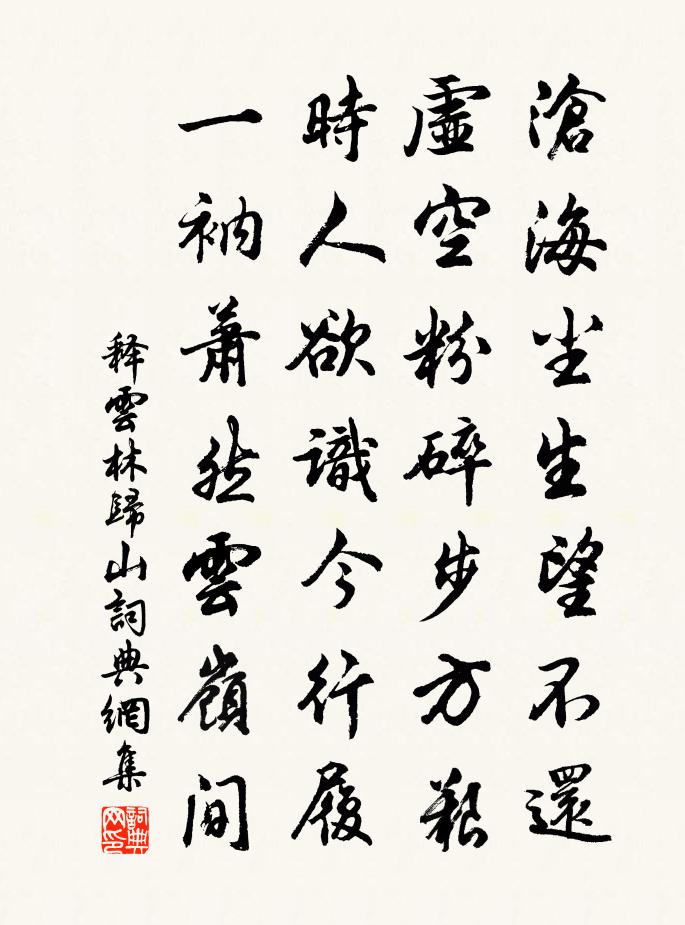 滄海尘生望不還
虛空粉碎步方艱
時人欲識今行履
一衲蕭然雲嶺間
释雲林歸山詞典網集
詞典网印